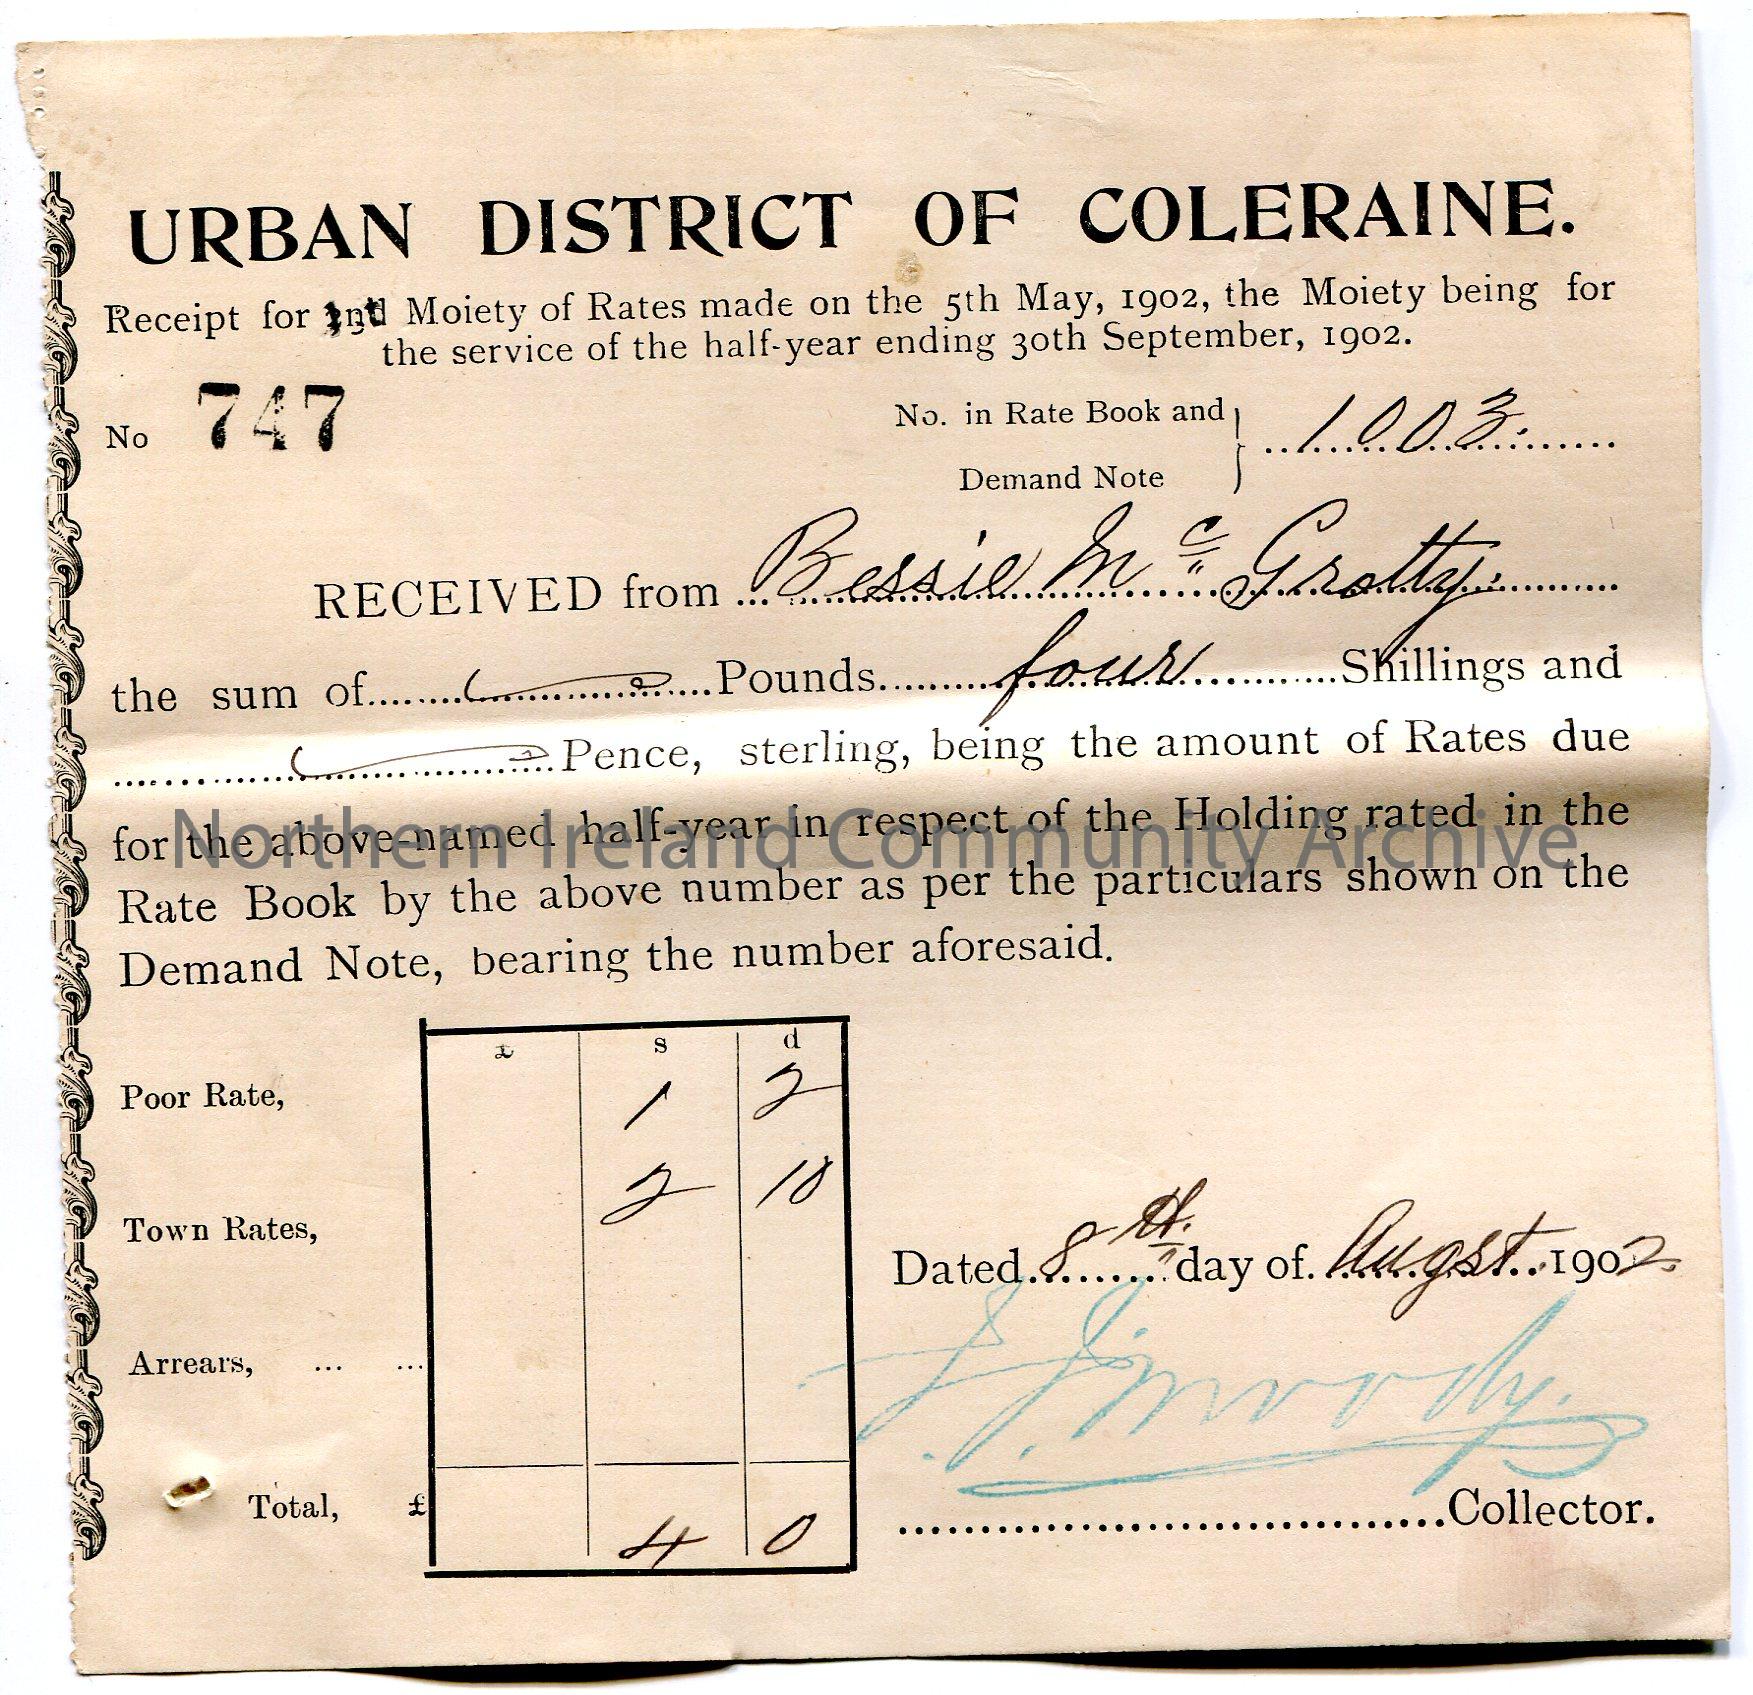 URBAN DISTRICT OF COLERAINE.
Receipt for Moiety of Rates made on the 5th May, 1902, the Moiety being for
the service of the half-year ending 30th September, 1902.
No 747
No. in Rate Book and
Demand Note } 1003.
RECEIVED from Bessie Mc Grotty
the sum of Pounds four Shillings and
Pence, sterling, being the amount of Rates due
for the above-named half-year in respect of the Holding rated in the
Northern Ireland Community Archive
Rate Book by the above number as per the particulars shown on the
Demand Note, bearing the number aforesaid.
£ s d
Poor Rate, 1 2
Town Rates, 2 10
Dated 8th. day of Augst 1902.
Arrears, ... ...
Moody.
Total, £ 4 0
Collector.